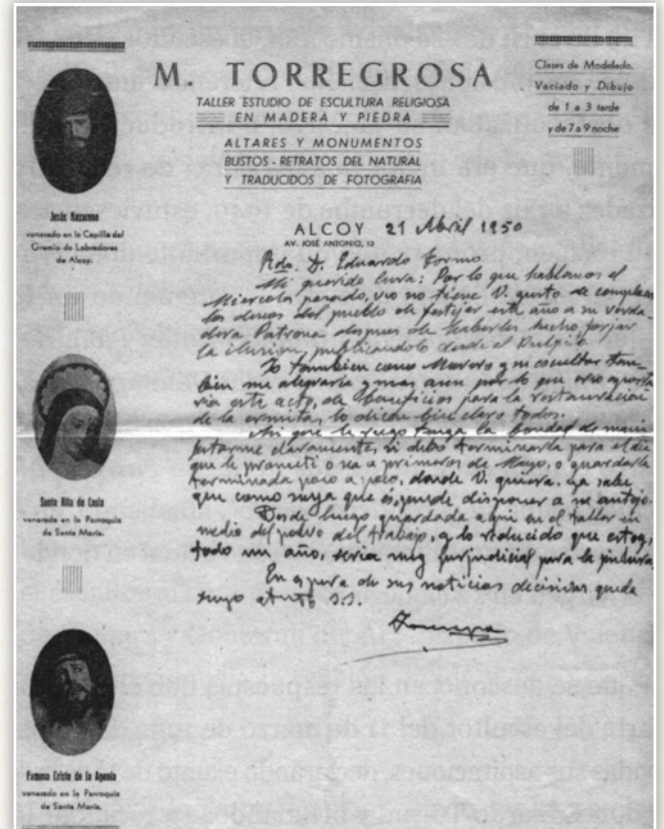 M. TORREGROSA
TALLER ESTUDIO DE ESCULTURA RELIGIOSA
EN MADERA Y PIEDRA
ALTARES Y MONUMENTOS
BUSTOS - RETRATOS DEL NATURAL
Y TRADUCIDOS DE FOTOGRAFIA
Clases de Modelado,
Vaciado y Dibujo
de 1 a 3 tarde
y de 7 a 9 noche
Jesús Nazareno
venerado en la Capilla del
Gremio de Labradores
de Alcoy.
Santa Rita de Casia
venerada en la Parroquia
de Santa María.
Famoso Cristo de la Agonía
venerado en la Parroquia
de Santa María.
ALCOY 21 Abril 1950
AV. JOSÉ ANTONIO, 13
Rdo. D. Eduardo Tormo
Mi querido Cura: Por lo que hablamos el
Miercoles pasado, veo no tiene V. gusto de complacer
los deseos del pueblo de festejar este año a su verda-
dera Patrona despues de haberles hecho forjar
la ilusion, publicandolo desde el Pulpito.
Yo tambien como Murero y su escultor tam-
bien me alegraria y mas aun por lo que
este acto, de beneficios para la restauracion
de la ermita, lo dicen bien claro todos.
Asi que le ruego tenga la bondad de mani-
festarme claramente, si debo terminarla para el dia
que le prometi o sea a primeros de Mayo, o guardarla
terminada poco a poco, donde V. quiera. Ya sabe
que como suya que es, puede disponer a su antojo.
Desde luego guardada aqui en el taller en
medio del polvo del trabajo, y lo reducido que estoy,
todo un año, seria muy perjudicial para la pintura.
En espera de sus noticias decisivas queda
suyo atento s.s.